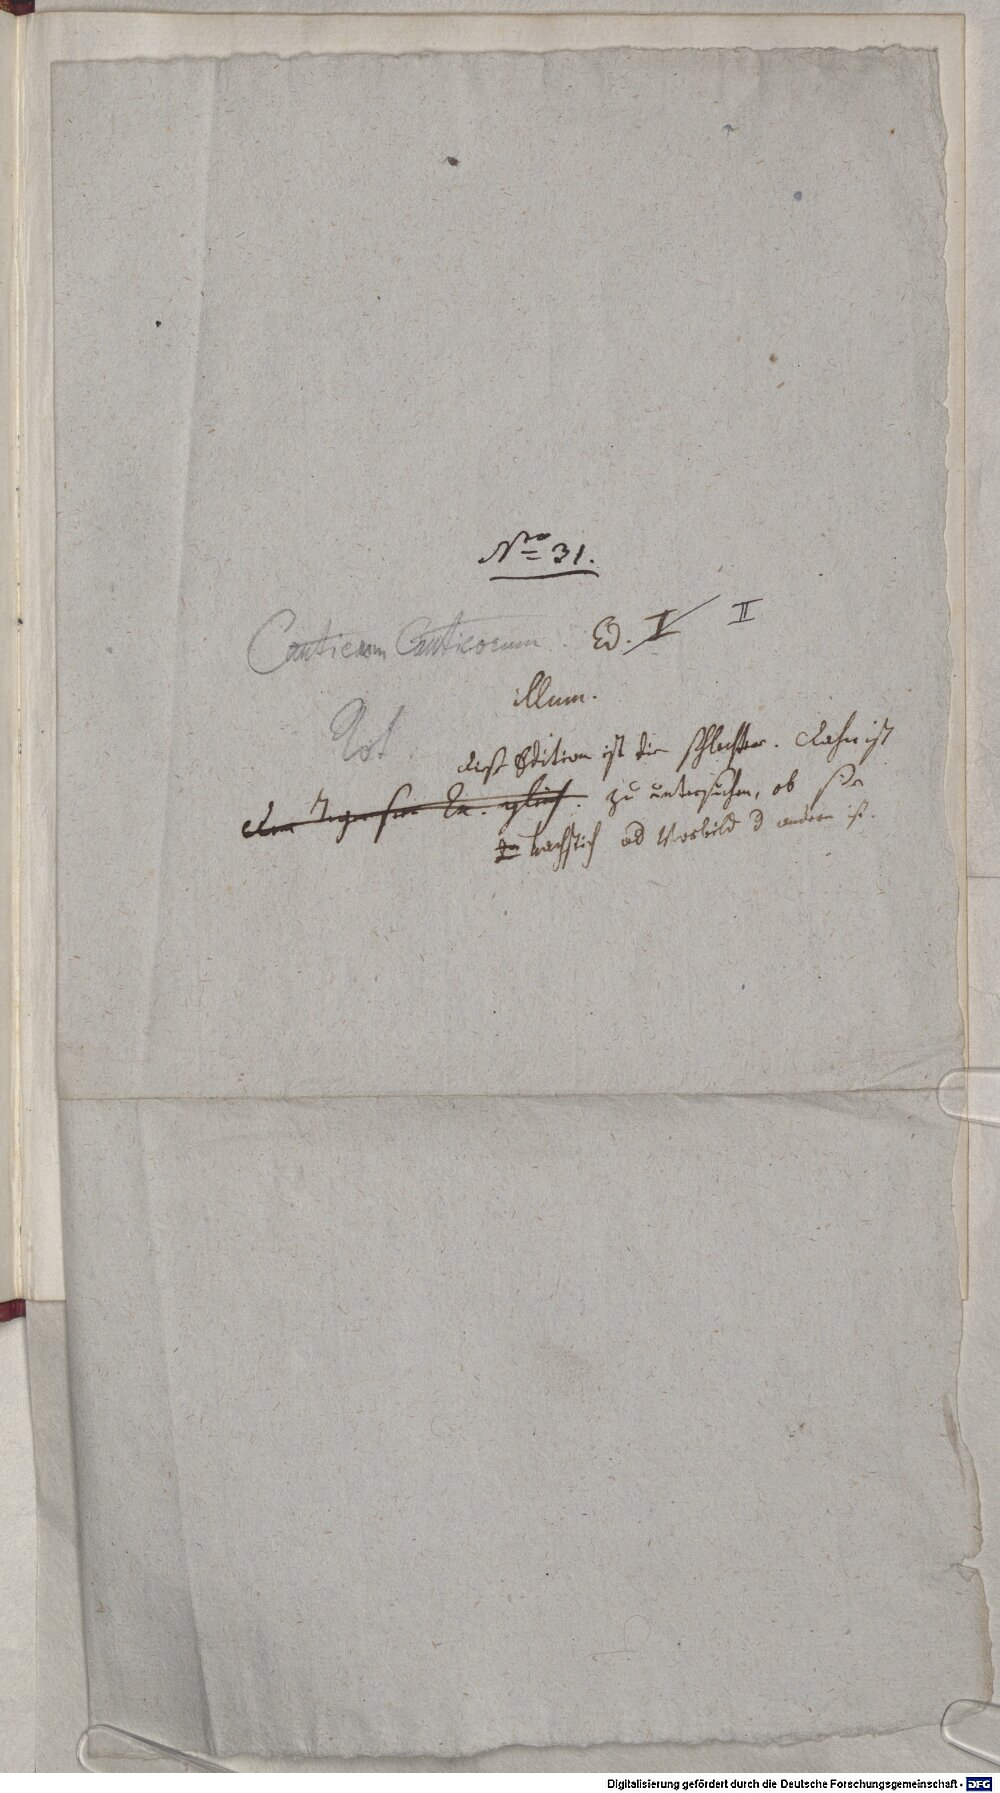 No 31.
Canticum Canticorum. Ed. I II
illum.
Not
diese Edition ist die schlechter. daher ist
zu untersuchen, ob sie
Nachstich od Vorbild d andern ist.
Digitalisierung gefördert durch die Deutsche Forschungsgemeinschaft - DFG